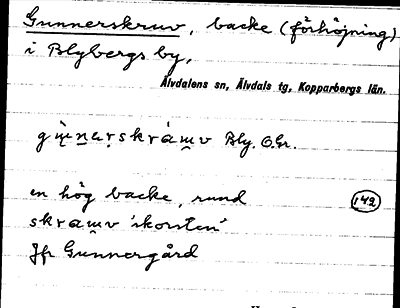 Gunnerskruv, backe (förhöjning)
i Blybergs by,
Älvdalens sn, Älvdals tg, Kopparbergs län.
Bly. O.Gr.
en hög backe, rund
142
'skorsten'
Jfr Gunnergård